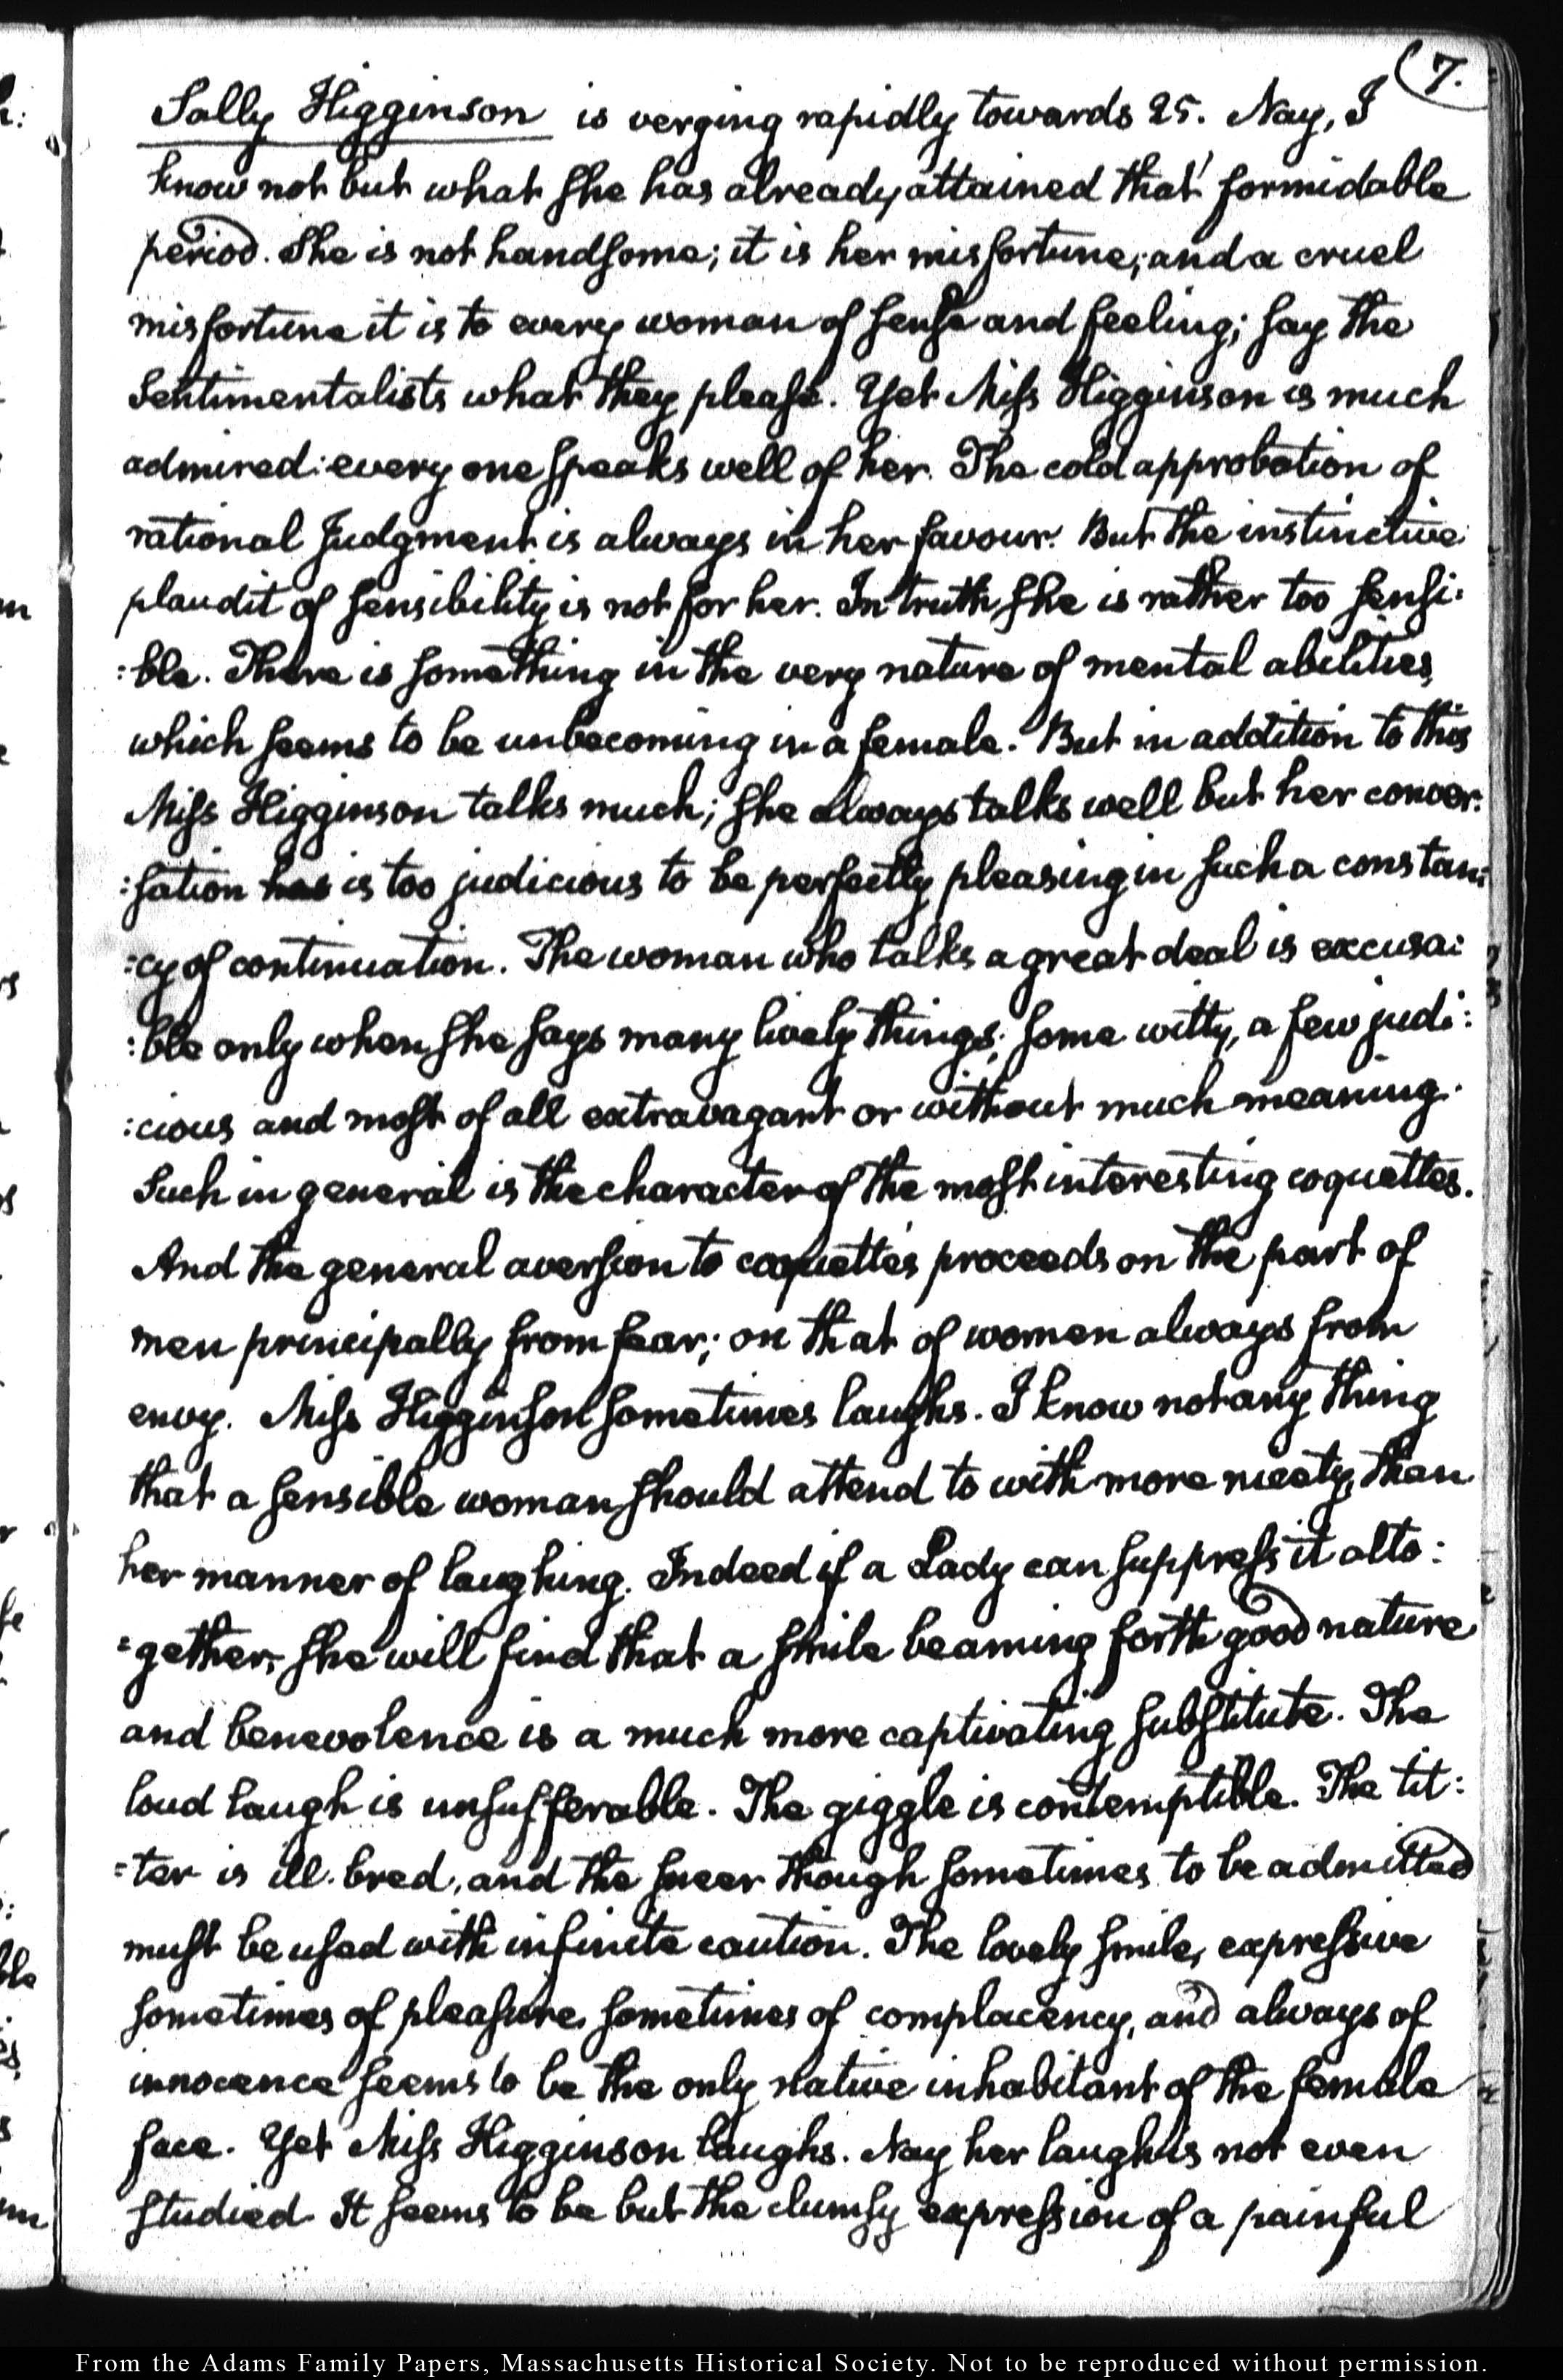 (7.
Sally Higginson is verging rapidly towards 25. Nay, I
know not but what she has already attained that formidable
period. She is not handsome; it is her misfortune; and a cruel
misfortune it is to every woman of sense and feeling; say the
Sentimentalists what they please. Yet Miss Higginson is much
admired: every one speaks well of her. The cold approbation of
rational Judgment is always in her favour. But the instinctive
plaudit of sensibility is not for her. In truth she is rather too sensi:
:ble. There is something in the very nature of mental abilities,
which seems to be unbecoming in a female. But in addition to this
Miss Higginson talks much; she always talks well but her conver:
:sation has is too judicious to be perfectly pleasing in such a constan:
:cy of continuation. The woman who talks a great deal is excusa:
:ble only when she says many lively things; some witty, a few judi:
:cious and most of all extravagant or without much meaning.
Such in general is the character of the most interesting coquettes.
And the general aversion to coquettes proceeds on the part of
men principally from fear; on that of women always from
envy. Miss Higginson sometimes laughs. I know not any thing
that a sensible woman should attend to with more nicety, than
her manner of laughing. Indeed if a Lady can suppress it alto:
:gether, she will find that a smile beaming forth good nature
and benevolence is a much more captivating substitute. The
loud laugh is unsufferable. The giggle is contemptible. The tit:
:ter is ill.bred, and the sneer though sometimes to be admitted
must be used with infinite caution. The lovely smile, expressive
sometimes of pleasure, sometimes of complacency, and always of
innocence seems to be the only native inhabitant of the female
face. Yet Miss Higginson laughs. Nay her laugh is not even
studied. It seems to be but the clumsy expression of a painful
From the Adams Family Papers, Massachusetts Historical Society. Not to be reproduced without permission.